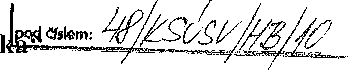 pod číslem: 48/KSÚSV/HB/10